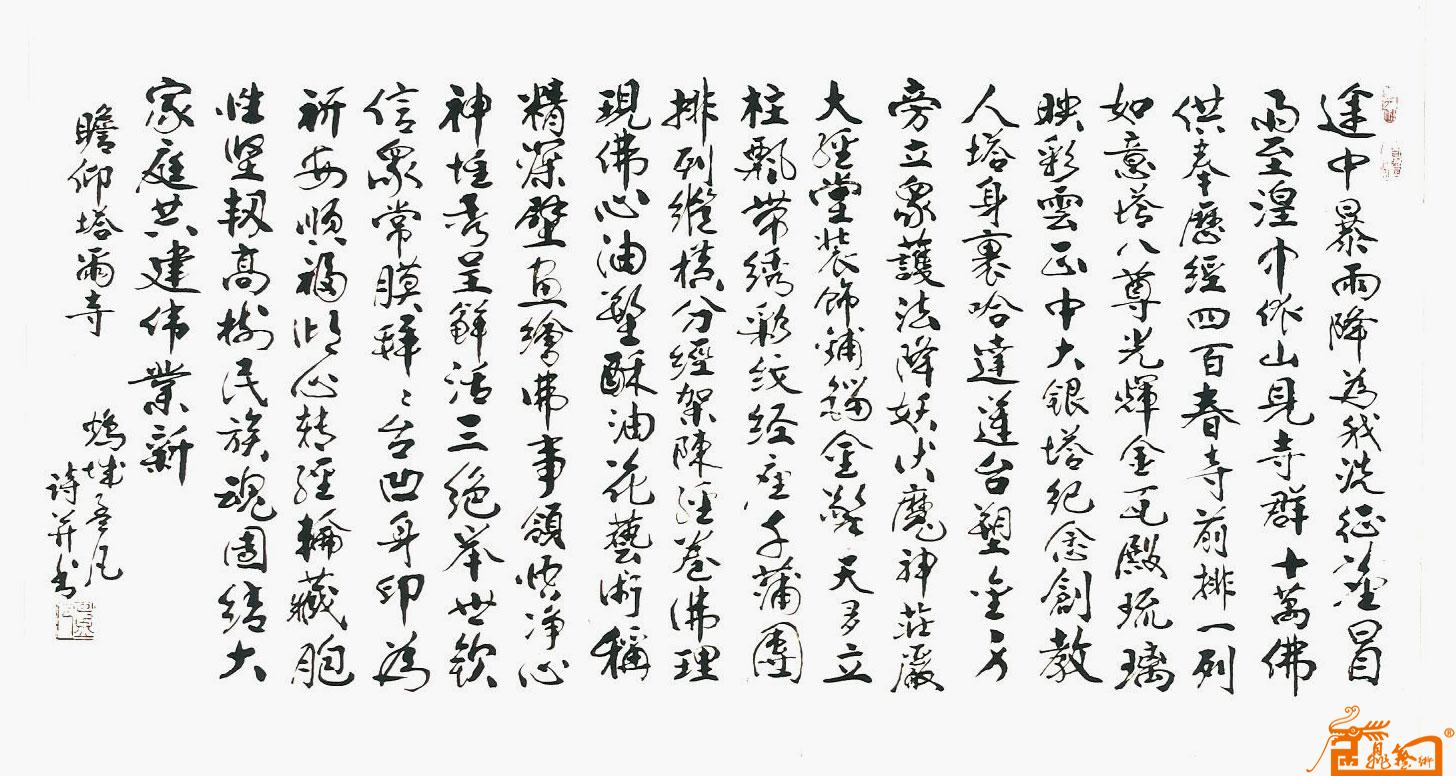 途中暴雨降為我洗征塗冒
雨至湟中依山見寺群十萬佛
供奉歷經四百春寺前排一列
如意塔八尊光輝金瓦殿琉璃
映彩雲正中大銀塔紀念創教
人塔身裹哈達蓮台塑金
旁立眾護法降妖伏魔神莊嚴
大經堂裝飾鋪鎦金 天多立
柱飄帶绣彩纹经座千蒲團
排列縱橫分經架陳經卷佛理
現佛心油塑酥油花藝術稱
精深壁画繪佛事領悟净心
神堆秀呈鲜活三絶举世欽
信眾常膜拜台凹身印為
祈安順福心转經輪藏胞
性坚韧高樹民族魂團结大
家庭共建伟業新
瞻仰塔爾寺
城
詩并书